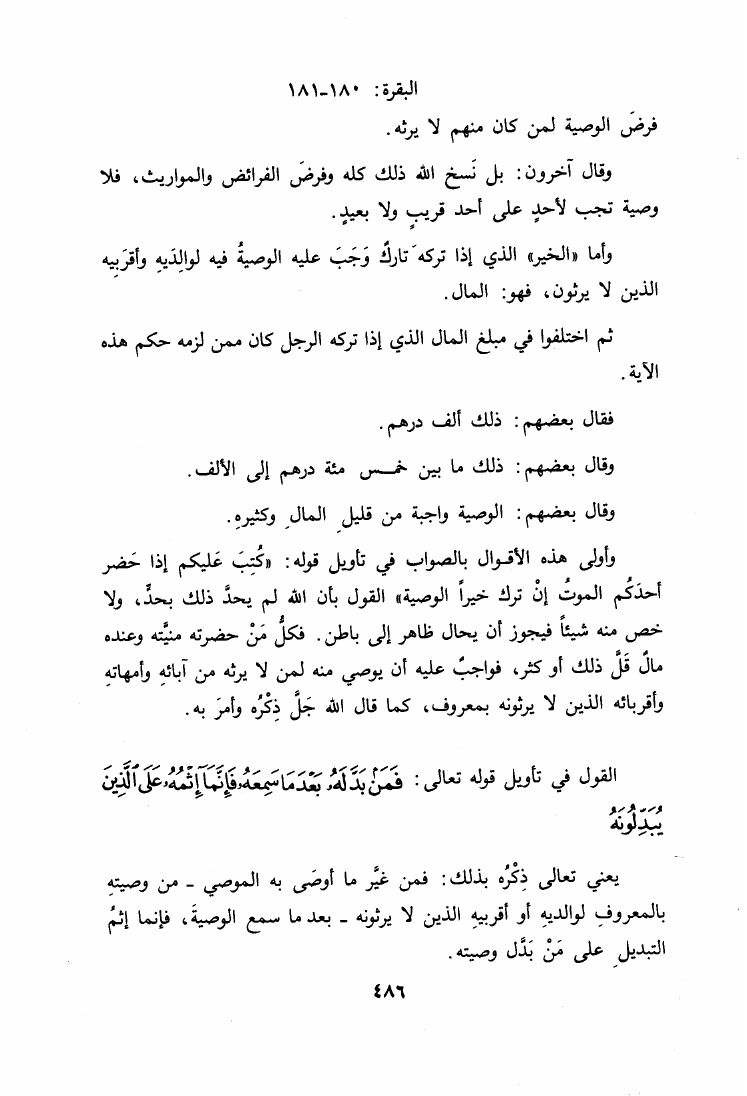 البقرة: ١٨٠-١٨١
فرضَ الوصية لمن كان منهم لا يرثه.
وقال آخرون: بل نَسخ الله ذلك كله وفرضَ الفرائض والمواريث، فلا
وصية تجب لأحدٍ على أحد قريبٍ ولا بعيدٍ.
وأما «الخير» الذي إذا تركه تاركٌ وَجَبَ عليه الوصيةُ فيه لوالِدَيهِ وأقرَبِيه
الذين لا يرثون، فهو: المال.
ثم اختلفوا في مبلغ المال الذي إذا تركه الرجل كان ممن لزمه حكم هذه
الآية.
فقال بعضهم: ذلك ألف درهم.
وقال بعضهم: ذلك ما بين خمس مئة درهم إلى الألف.
وقال بعضهم: الوصية واجبة من قليلِ المالِ وكثيرهِ.
وأولى هذه الأقوال بالصواب في تأويل قوله: «كُتِبَ عَليكم إذا حَضر
أحدَكُم الموتُ إنْ ترك خيراً الوصية» القول بأن الله لم يحدَّ ذلك بحدٍّ، ولا
خص منه شيئاً فيجوز أن يحال ظاهر إلى باطن. فكلُّ مَنْ حضرته منيَّته وعنده
مالٌ قَلَّ ذلك أو كثر، فواجبٌ عليه أن يوصي منه لمن لا يرثه من آبائهِ وأمهاتهِ
وأقربائه الذين لا يرثونه بمعروف، كما قال الله جَلَّ ذِكْرُه وأمرَ به.
القول في تأويل قوله تعالى: فَمَنۢ بَدَّلَهُۥ بَعْدَ مَا سَمِعَهُۥ فَإِنَّمَآ إِثْمُهُۥ عَلَى ٱلَّذِينَ
يُبَدِّلُونَهُۥٓ
يعني تعالى ذِكْرُه بذلك: فمن غيَّر ما أوصَى به الموصي - من وصيتهِ
بالمعروفِ لوالديهِ أو أقربيهِ الذين لا يرثونه - بعد ما سمع الوصيةَ، فإنما إثمُ
التبديلِ على مَنْ بَدَّل وصيته.
٤٨٦